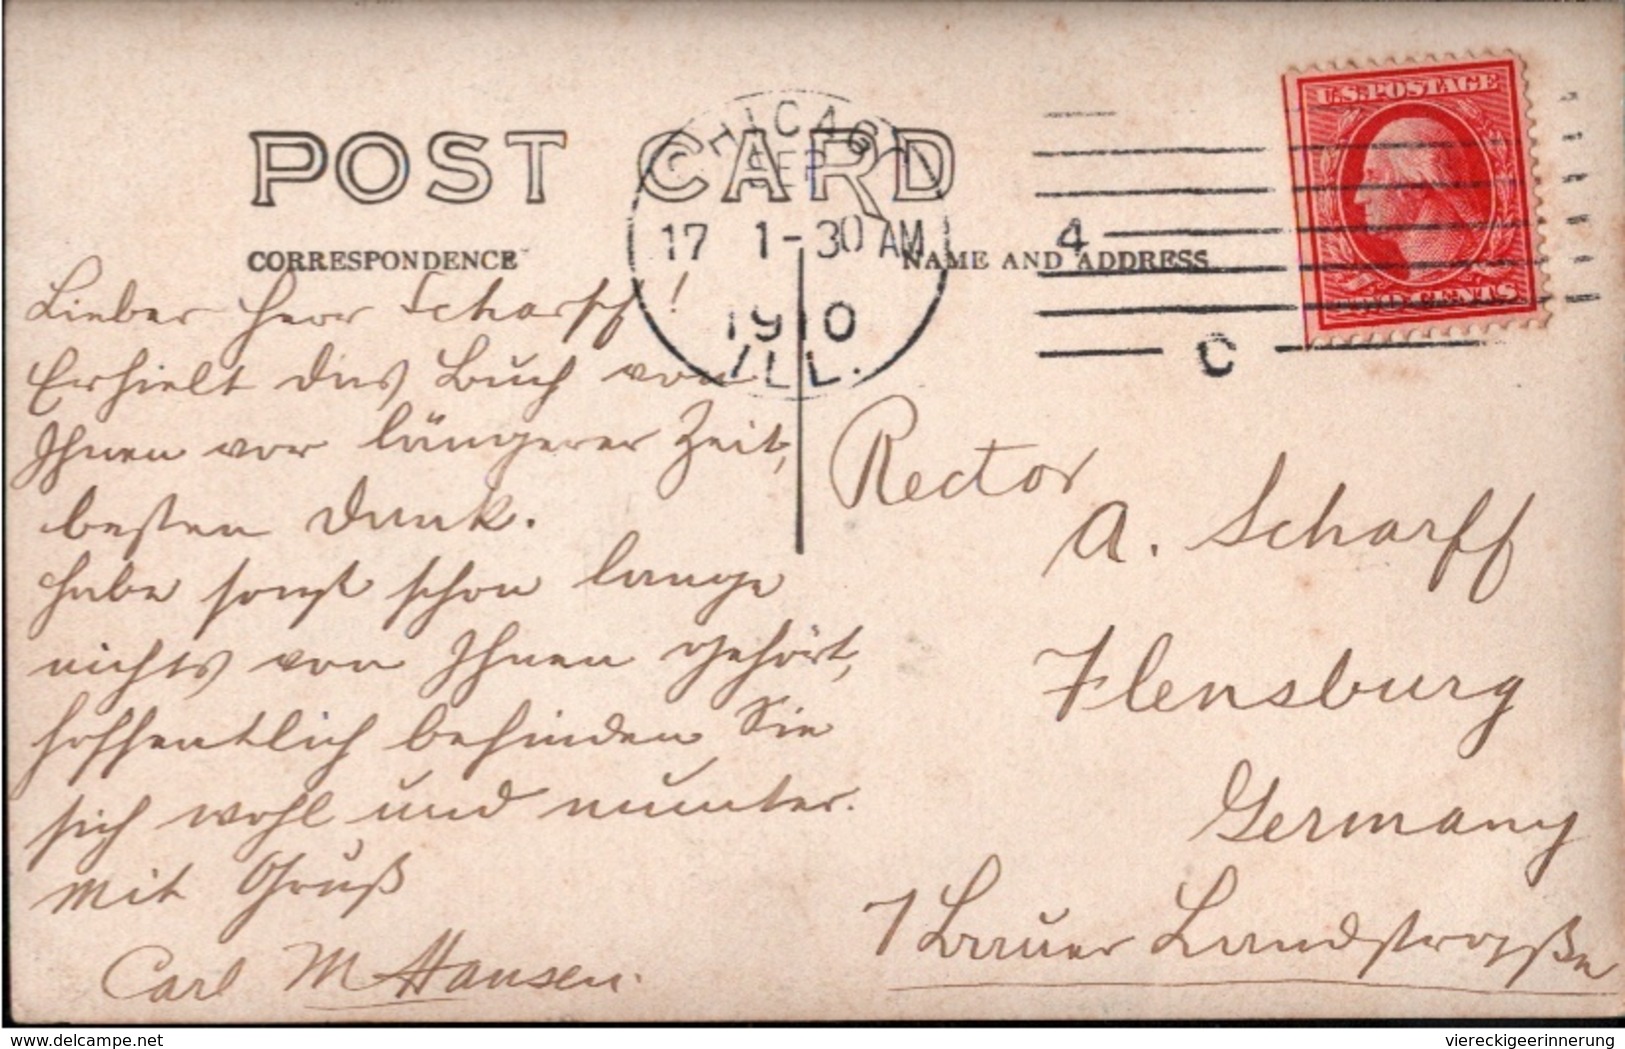 POST CARD
CORRESPONDENCE
NAME AND ADDRESS
CHICAGO
SEP
17 1-30 AM
1910
ILL.
4
C
U.S.POSTAGE
TWO CENTS
Lieber Herr Scharff!
Erhielt das Buch von
Ihnen vor längerer Zeit,
besten Dank.
habe sonst schon lange
nichts von Ihnen gehört,
hoffentlich befinden Sie
sich wohl und munter.
Mit Gruß
Carl M Hansen.
Rector
A. Scharff
Flensburg
Germany
Landstraße
delcampe.net
viereckigeerinnerung